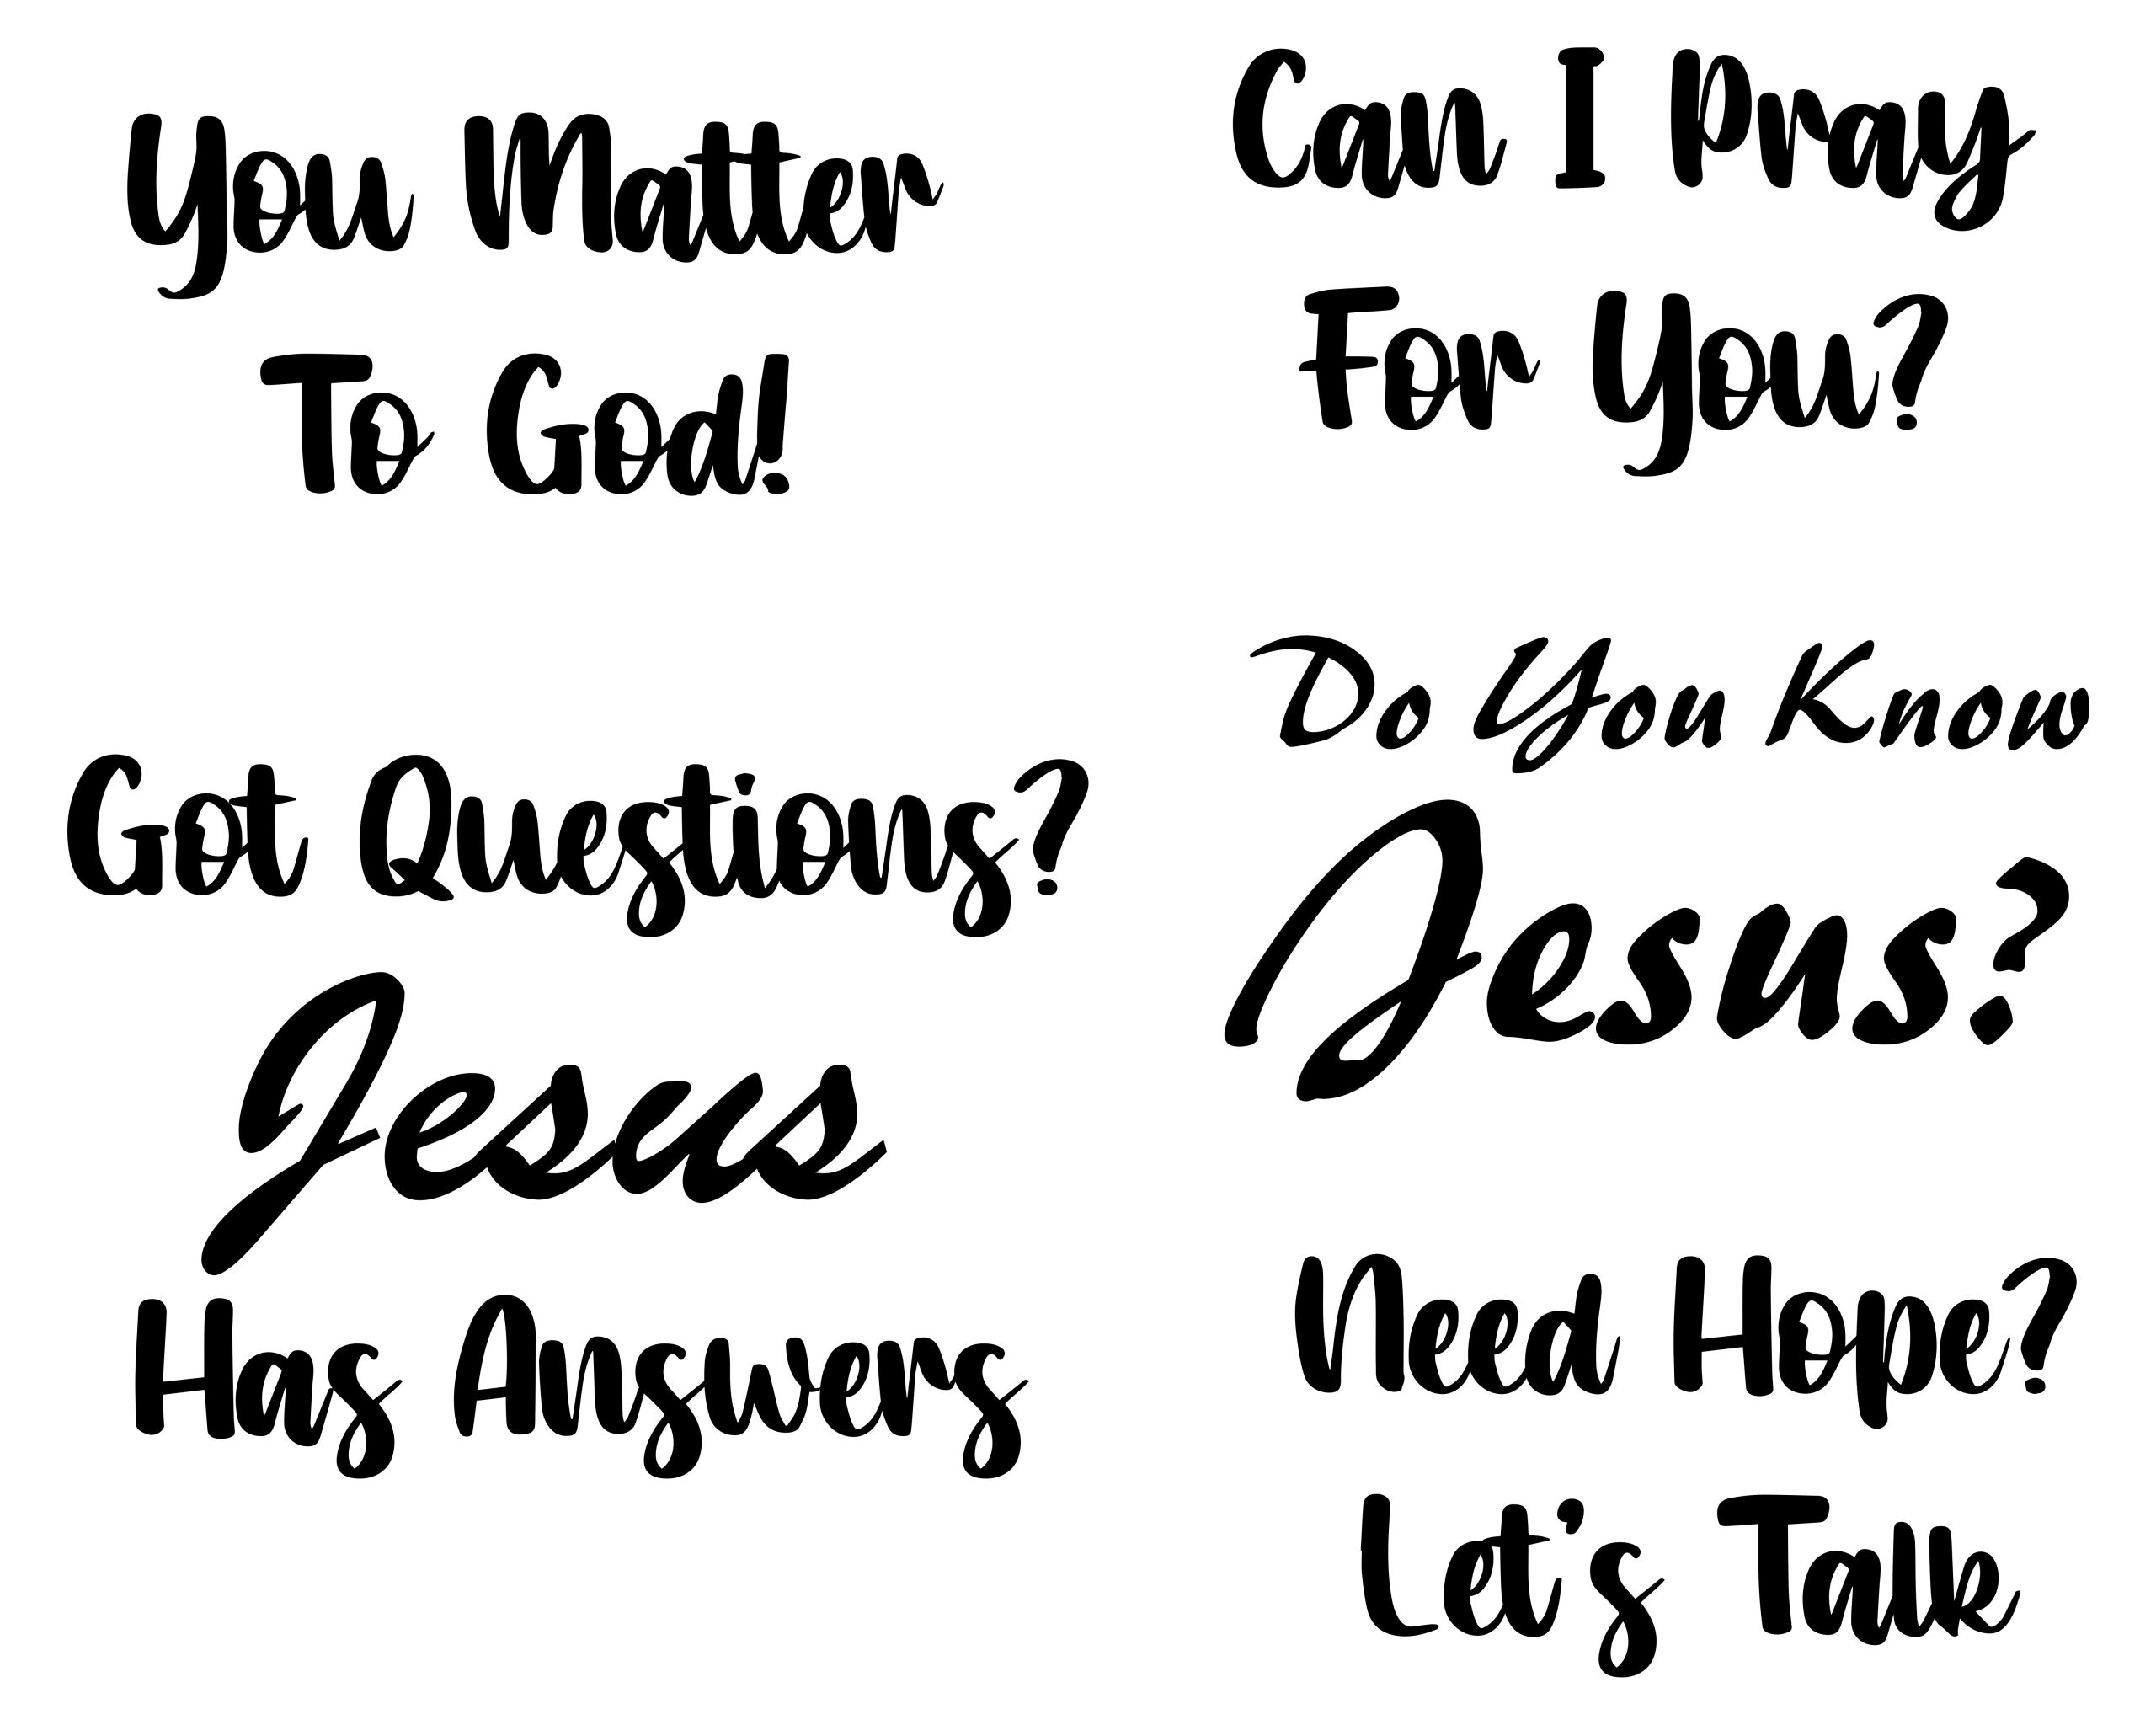 You Matter
To God!
Can I Pray
For You?
Got Questions?
Jesus
Has Answers
Do You Know
Jesus?
Need Hope?
Let's Talk